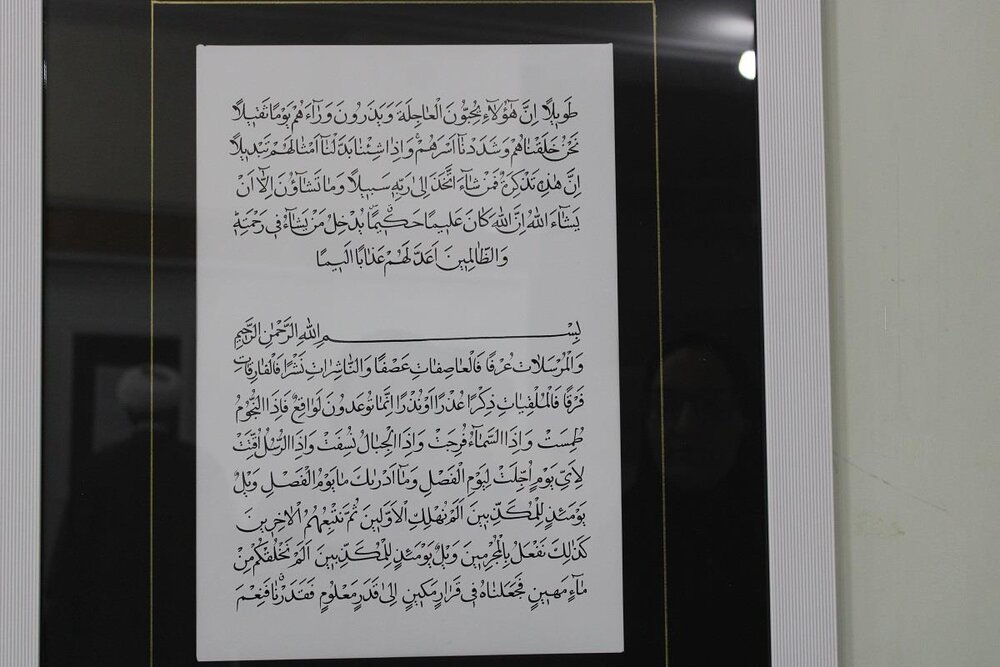 طَوِيلًا اِنَّ هٰٓؤُلَآءِ يُحِبُّونَ الْعَاجِلَةَ وَيَذَرُونَ وَرَآءَهُمْ يَوْمًا ثَقِيلًا
نَحْنُ خَلَقْنَاهُمْ وَشَدَدْنَآ اَسْرَهُمْ وَاِذَا شِئْنَا بَدَّلْنَآ اَمْثَالَهُمْ تَبْدِيلًا
اِنَّ هٰذِهِ تَذْكِرَةٌ فَمَنْ شَآءَ اتَّخَذَ اِلٰى رَبِّهِ سَبِيلًا وَمَا تَشَآؤُنَ اِلَّآ اَنْ
يَشَآءَ اللّٰهُ اِنَّ اللّٰهَ كَانَ عَلِيمًا حَكِيمًا يُدْخِلُ مَنْ يَشَآءُ فِى رَحْمَتِهِ
وَالظَّالِمِينَ اَعَدَّ لَهُمْ عَذَابًا اَلِيمًا
بِسْمِ اللّٰهِ الرَّحْمٰنِ الرَّحِيمِ
وَالْمُرْسَلَاتِ عُرْفًا فَالْعَاصِفَاتِ عَصْفًا وَالنَّاشِرَاتِ نَشْرًا فَالْفَارِقَاتِ
فَرْقًا فَالْمُلْقِيَاتِ ذِكْرًا عُذْرًا اَوْ نُذْرًا اِنَّمَا تُوعَدُونَ لَوَاقِعٌ فَاِذَا النُّجُومُ
طُمِسَتْ وَاِذَا السَّمَآءُ فُرِجَتْ وَاِذَا الْجِبَالُ نُسِفَتْ وَاِذَا الرُّسُلُ اُقِّتَتْ
لِاَىِّ يَوْمٍ اُجِّلَتْ لِيَوْمِ الْفَصْلِ وَمَآ اَدْرٰىكَ مَا يَوْمُ الْفَصْلِ وَيْلٌ
يَوْمَئِذٍ لِلْمُكَذِّبِينَ اَلَمْ نُهْلِكِ الْاَوَّلِينَ ثُمَّ نُتْبِعُهُمُ الْاٰخِرِينَ
كَذٰلِكَ نَفْعَلُ بِالْمُجْرِمِينَ وَيْلٌ يَوْمَئِذٍ لِلْمُكَذِّبِينَ اَلَمْ نَخْلُقْكُمْ مِنْ
مَآءٍ مَهِينٍ فَجَعَلْنَاهُ فِى قَرَارٍ مَكِينٍ اِلٰى قَدَرٍ مَعْلُومٍ فَقَدَرْنَا فَنِعْمَ